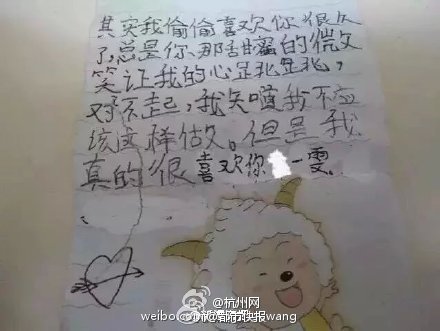 其实我偷偷喜欢你很久
了,总是你那甜蜜的微
笑让我的心
对不起,我知道我不应
该这样做。但是我
真的很喜欢你 一雯
@杭州网